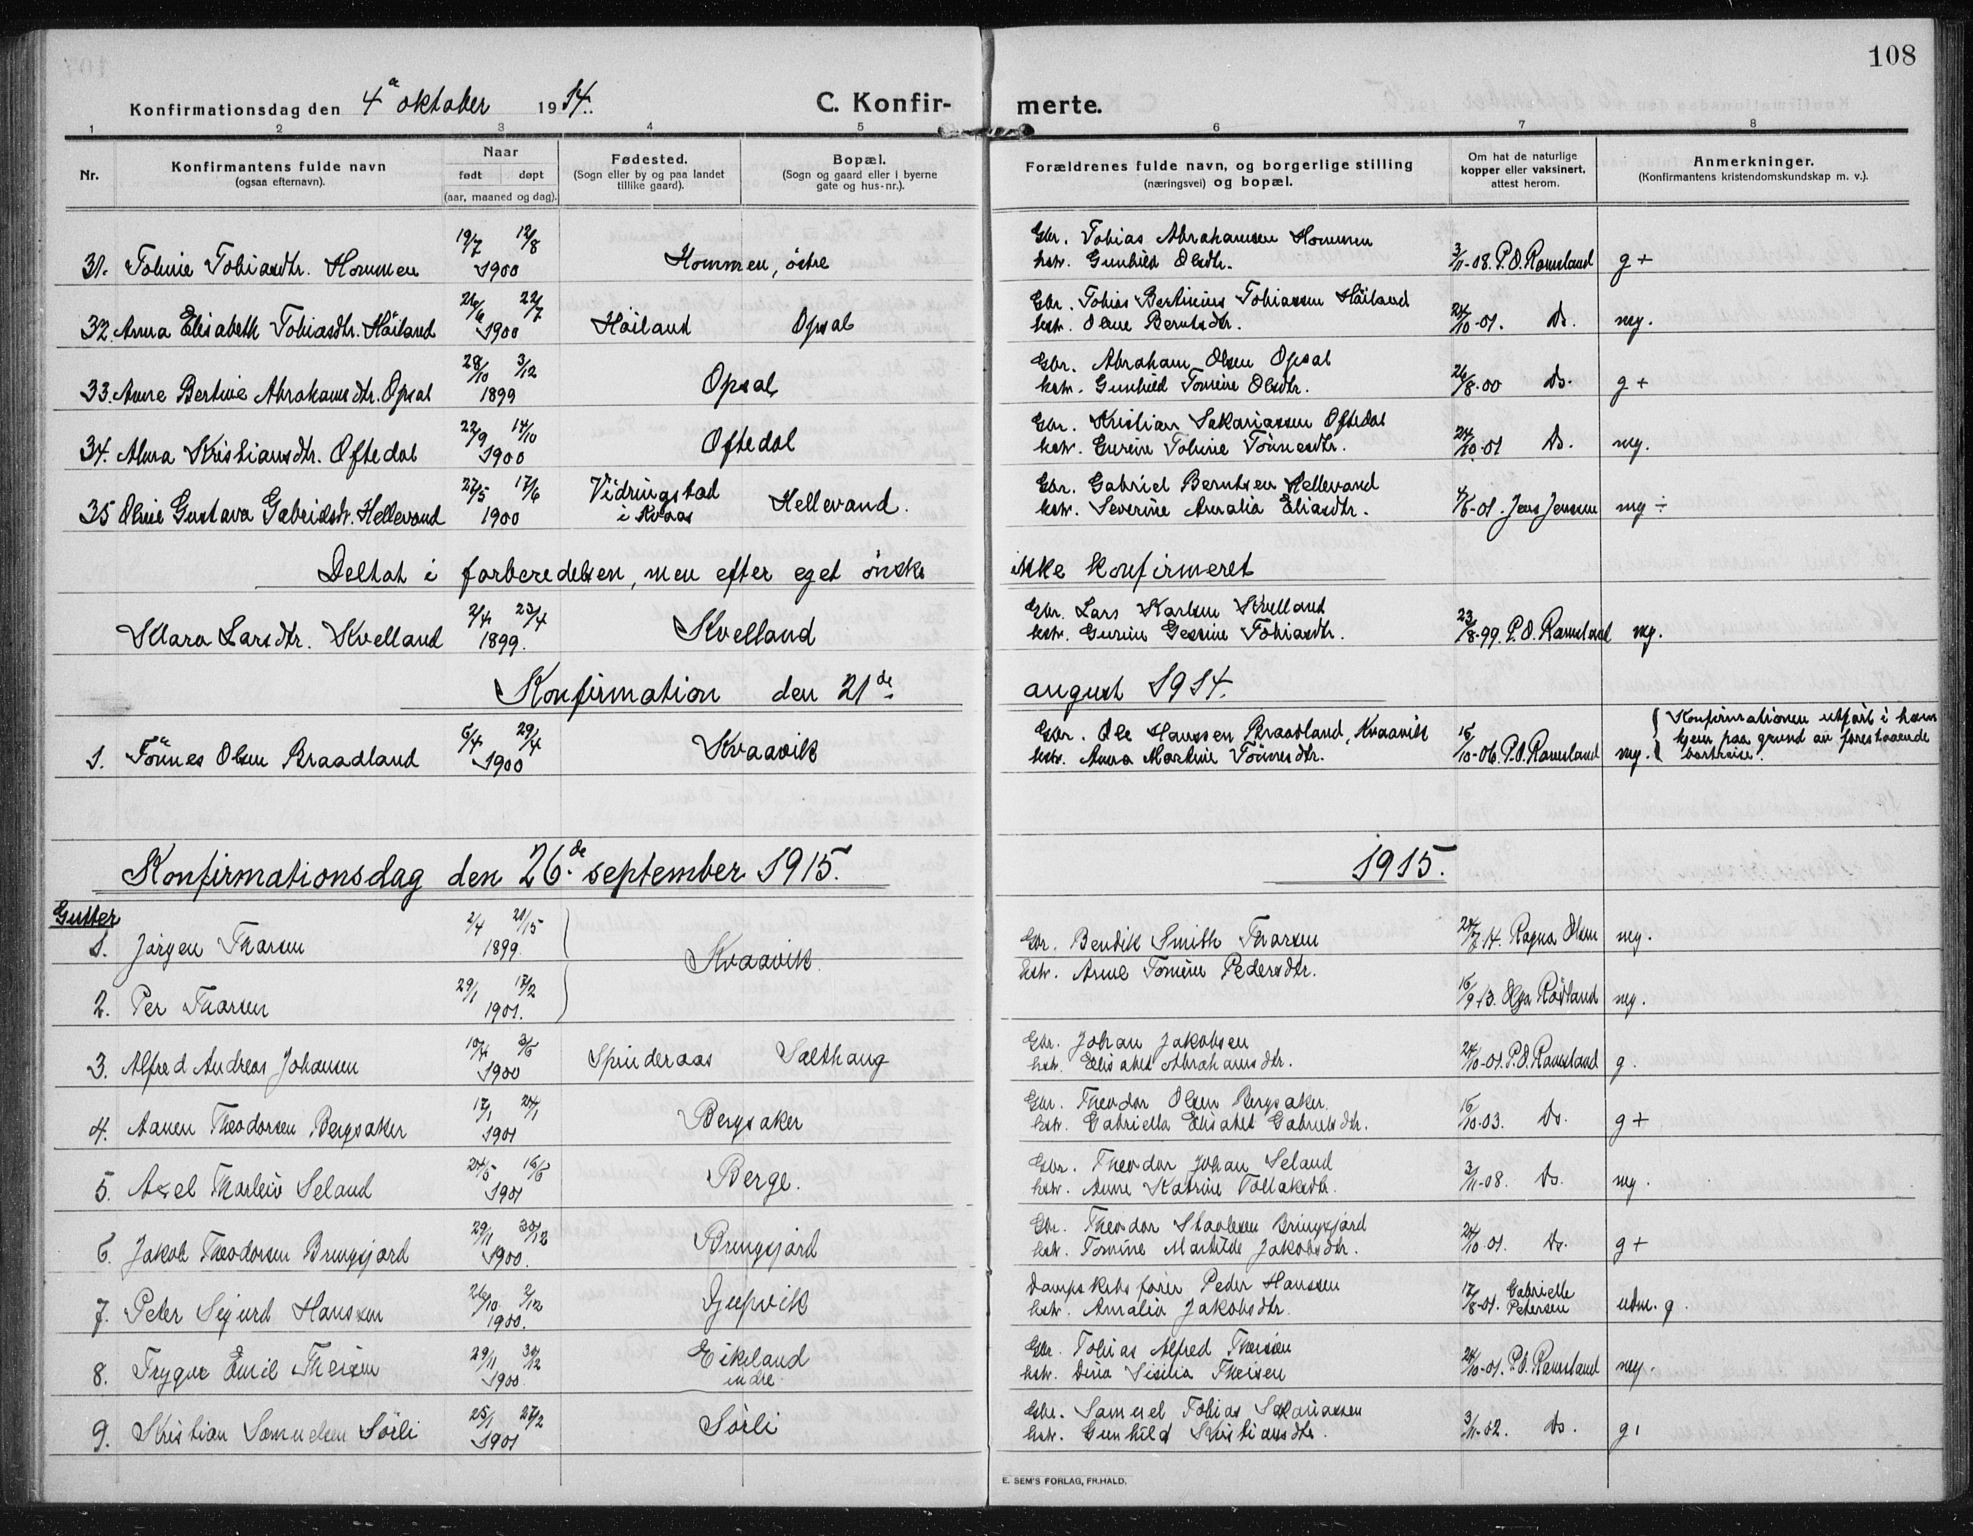 108
Konfirmationsdag den 4de oktober 1914. C. Konfirmerte.
1 2 3 4 5 6 7 8
Nr. Konfirmantens fulde navn (ogsaa efternavn). Naar født døpt (aar, maaned og dag). Fødested. (Sogn eller by og paa landet tillike gaard). Bopæl. (Sogn og gaard eller i byerne gate og hus-nr.). Forældrenes fulde navn, og borgerlige stilling (næringsvei) og bopæl. Om hat de naturlige kopper eller vaksinert, attest herom. Anmerkninger. (Konfirmantens kristendomskundskap m. v.).
31. Toline Tobiasdtr. Hommen 19/7 12/8 1900 Hommen, östre Gbr. Tobias Abrahamsen Hommen
hstr. Gunhild Olsdtr. 3/11-08. P.O. Ramsland g +
32. Anna Elisabeth Tobiasdtr. Höiland 26/6 22/7 1900 Höiland Opsal Gbr. Tobias Bertinius Tobiassen Höiland
hstr. Oline Berntsdtr. 24/10-01. Do. mg.
33. Anne Bertine Abrahamsdtr. Opsal 28/10 3/12 1899 Opsal Gbr. Abraham Olsen Opsal
hstr. Gunhild Tomine Olsdtr. 26/8-00 Do. g +
34. Alma Kristiansdtr. Oftedal 22/9 14/10 1900 Oftedal Gbr. Kristian Sakariassen Oftedal
hstr. Gurine Toline Tönnesdtr. 24/10-01 Do. mg.
35 Oline Gustava Gabrielsdtr. Hellevand 27/5 17/6 1900 Vidringstad i Kvaas Hellevand. Gbr. Gabriel Berntsen Hellevand
hstr. Severine Amalia Eliasdtr. 4/6-01. Jens Jenssen mg ÷
Deltat i forberedelsen, men efter eget önske ikke konfirmeret
Klara Larsdtr. Kvelland 2/4 23/4 1899. Kvelland Gbr. Lars Karlsen Kvelland
hstr. Gurine Gessine Tobiasdtr. 23/8-99. P.O. Ramsland mg.
Konfirmation den 21de august 1914.
1. Tönnes Olsen Braadland 6/4 29/4 1900 Kvaavik Gbr. Ole Hanssen Braadland, Kvaavik
hstr. Anna Martine Tönnesdtr. 15/10-06. P.O. Ramsland mg. Konfirmationen utført i hjemmet paa grund av forestaaende bortreise.
Konfirmationsdag den 26de september 1915. 1915.
Gutter
1. Jörgen Thorsen 2/4 21/15 1899. Kvaavik. Gbr. Bendik Smith Thorsen 24/7 14. Ragna Olsen mg.
hstr. Anne Tomine Pedersdtr.
2. Per Thorsen 29/1 17/2 1901. 15/9 13. Olga Rödland mg.
3. Alfred Andreas Johansen 10/4 3/6 1900 Spinderaas Salthaug Gbr. Johan Jakobsen
hstr. Elisabet Abrahamsdtr. 24/10-01. P.O. Ramsland g.
4. Aanen Theodorsen Bergsaker 17/1 24/1 1901 Bergsaker Gbr. Theodor Olsen Bergsaker.
hstr. Gabriella Elisabet Gabrielsdtr. 15/10-03. Do. g +
5. Axel Thorleiv Seland 24/5 16/6 1901 Berge. Gbr. Theodor Johan Seland
hstr. Anne Katrine Tollaksdtr. 3/11-08. Do. mg.
6. Jakob Theodorsen Bringsjord 29/11 30/12 1900. Bringsjord Gbr. Theodor Staalesen Bringsjord
hstr. Tomine Martilde Jakobsdtr. 24/10-01. Do. g +
7. Peter Sigurd Hanssen 26/10 2/12 1900. Djupvik Dampskibsfører Peder Hanssen
hstr. Amalia Jakobsdtr. 17/8-01. Gabrielle Petersen udm. g.
8. Trygve Emil Theisen 29/11 30/12 1900 Eikeland indre Gbr. Tobias Alfred Theisen
hstr. Dina Sisilia Theisen 24/10-01. P.O. Ramsland mg.
9. Kristian Samuelsen Sörli 25/1 27/2 1901 Sörli Gbr. Samuel Tobias Sakariassen
hstr. Gunhild Kristiansdtr. 3/11-02. Do. g
E. SEM'S FORLAG, FR.HALD.